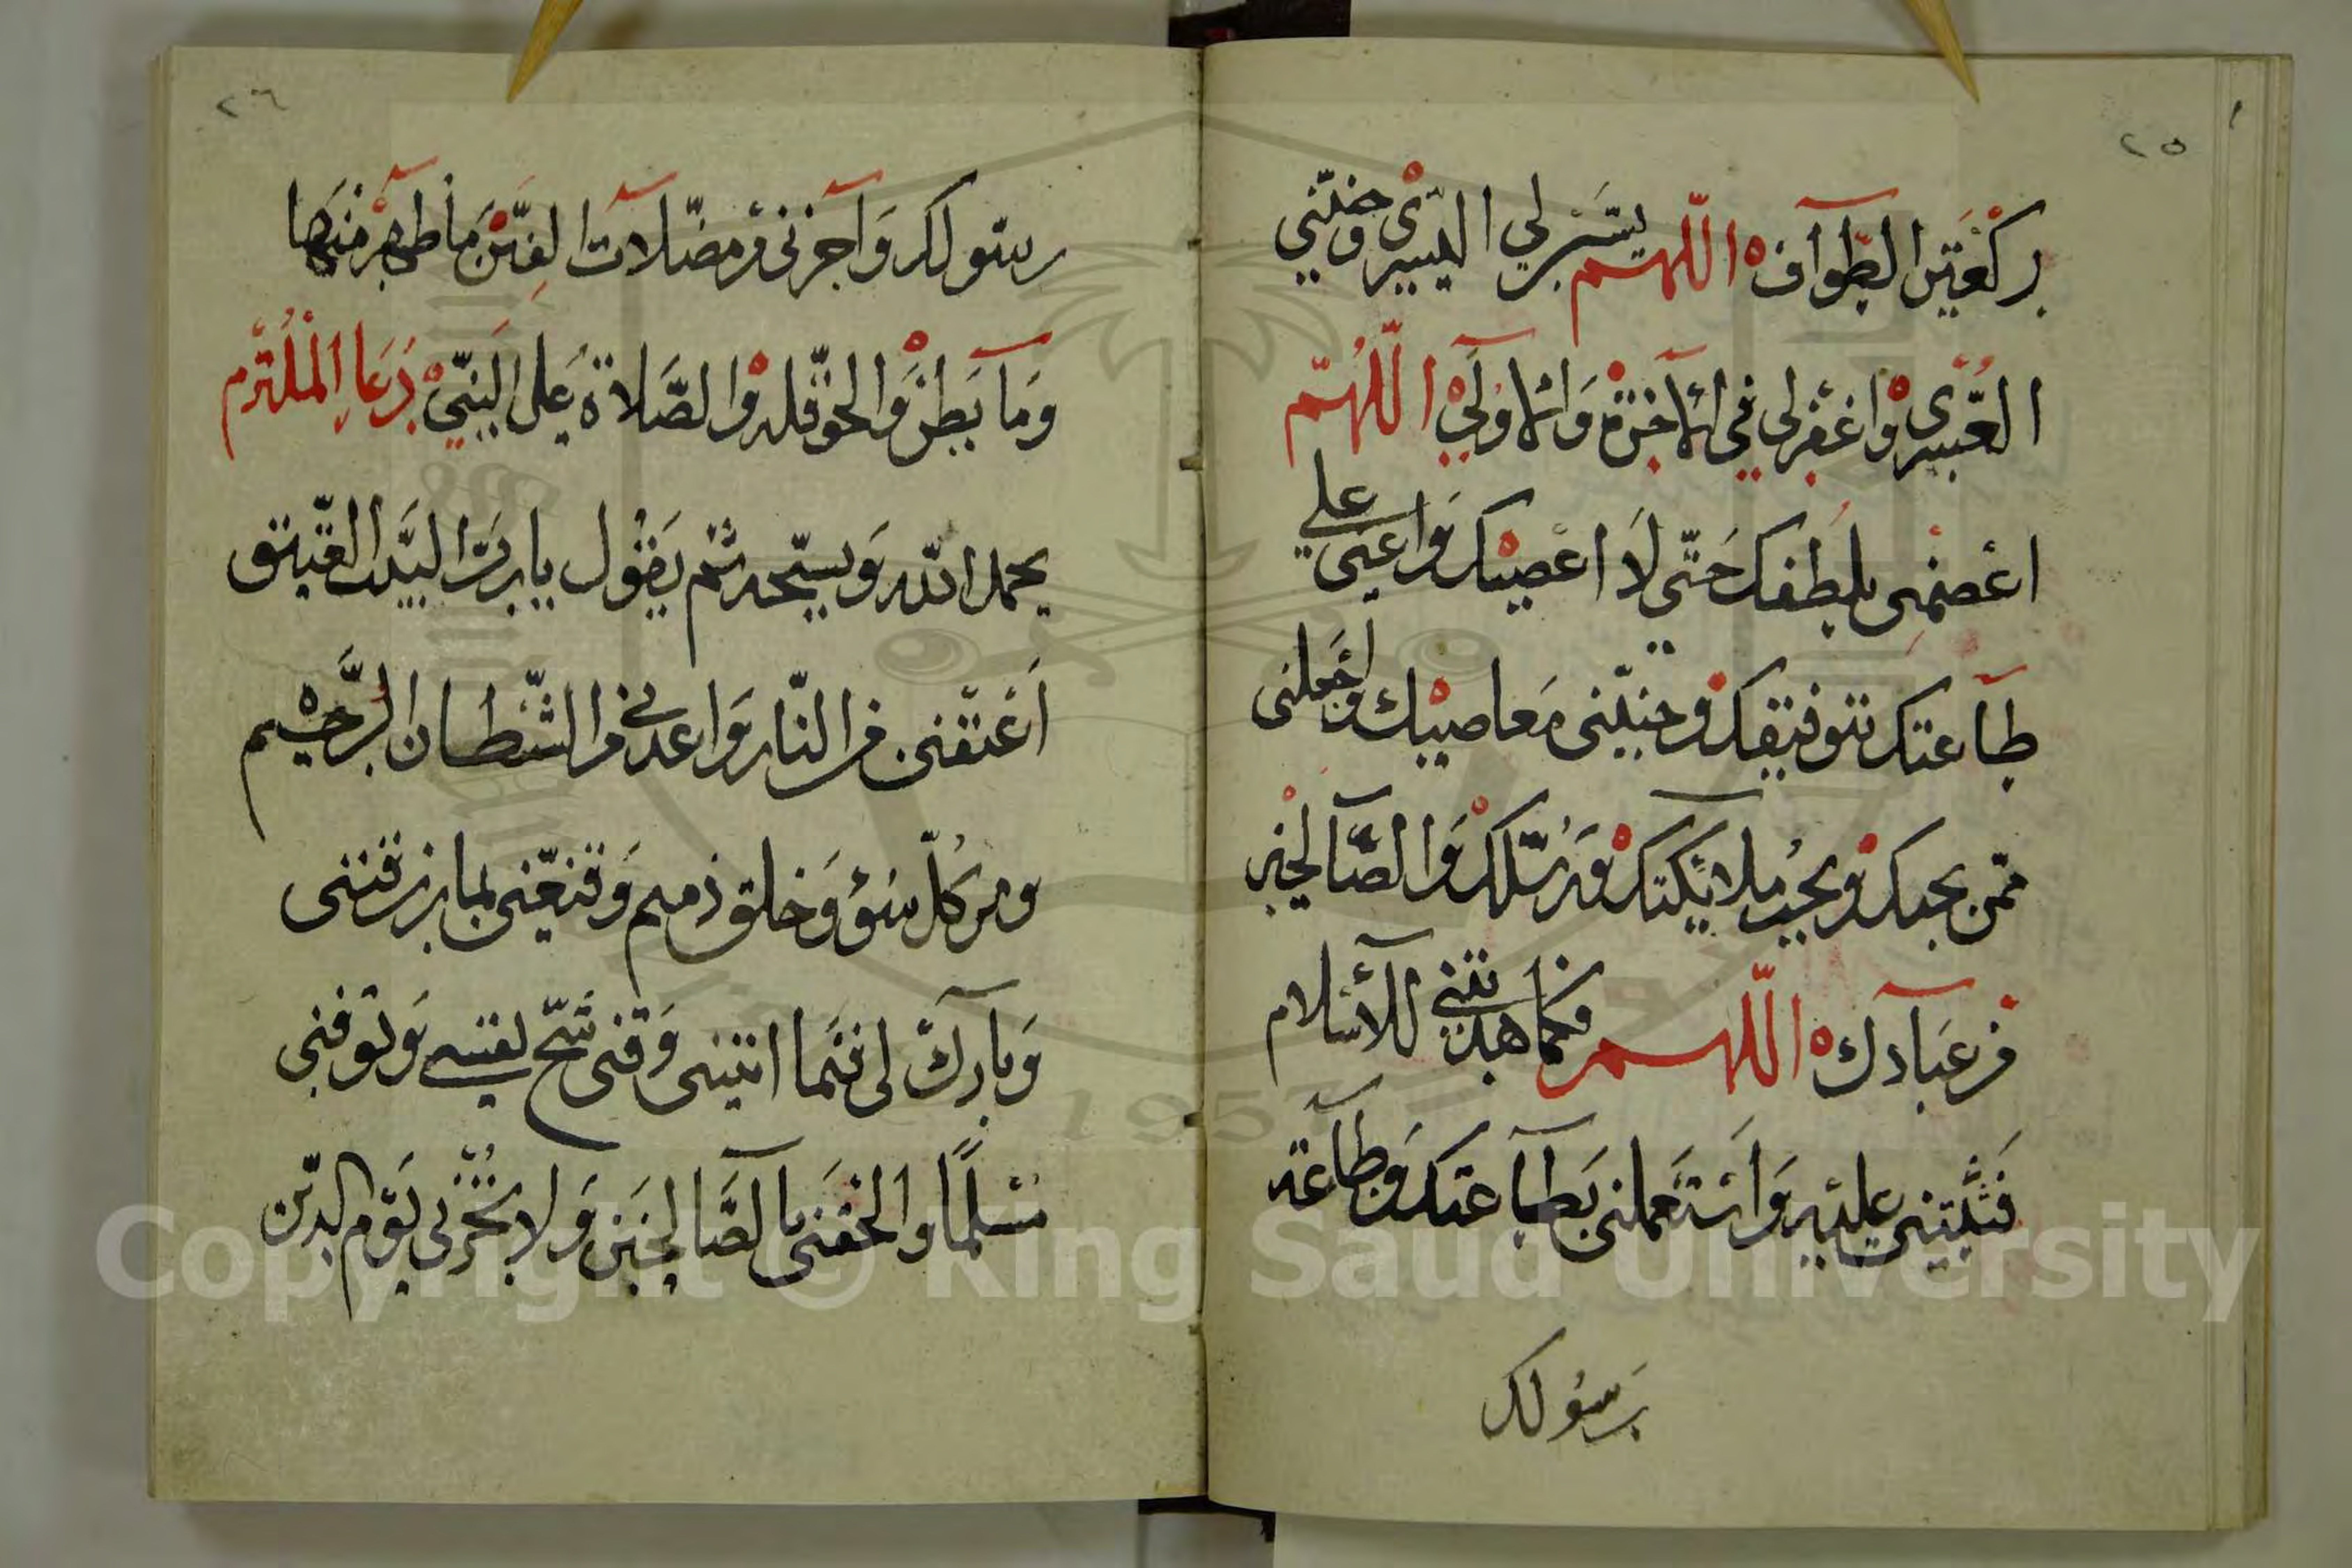 ٢٥
ركعتي الطواف اللهم يسر لي اليسرى وجنبني
العسرى واغفر لي في الآخرة والأولى اللهم
اعصمني بلطفك حتى لا اعصيك واعني على
طاعتك بتوفيقك وجنبني معاصيك واجعلني
ممن يحبك ويحب ملائكتك ورسلك والصالحين
من عبادك اللهم فكما هديتني للاسلام
فثبتني عليه واستعملني بطاعتك وطاعة
رسولك
٢٦
رسولك وآجرني من مضلات الفتن ما ظهر منها
وما بطن والحوقله والصلاة على النبي دعاء الملتزم
يحمد الله ويسبحه ثم يقول يا رب البيت العتيق
اعتقني من النار واعذني من الشيطان الرجيم
ومن كل سوء وخلق ذميم وقنعني بما رزقتني
وبارك لي فيما اتيتني وقني شح نفسي وتوفني
مسلما والحقني بالصالحين ولا تخزني يوم الدين
Copyright © King Saud University
1957